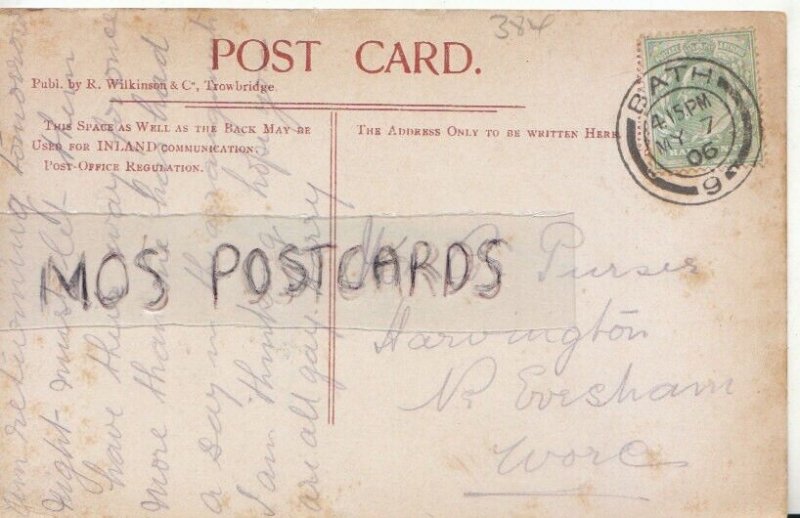 384
POST CARD.
Publ. by R. Wilkinson & Co, Trowbridge.
THIS SPACE AS WELL AS THE BACK MAY BE
USED FOR INLAND COMMUNICATION.
POST-OFFICE REGULATION.
THE ADDRESS ONLY TO BE WRITTEN HERE
BATH
4.15PM
MY 7
06
9
MOS POSTCARDS
Purser
Harvington
Nr Evesham
Worc
Am returning tomorrow
night must let them
have their way once
more than he had
a say in the
I am thinking hoping you
are all gay.